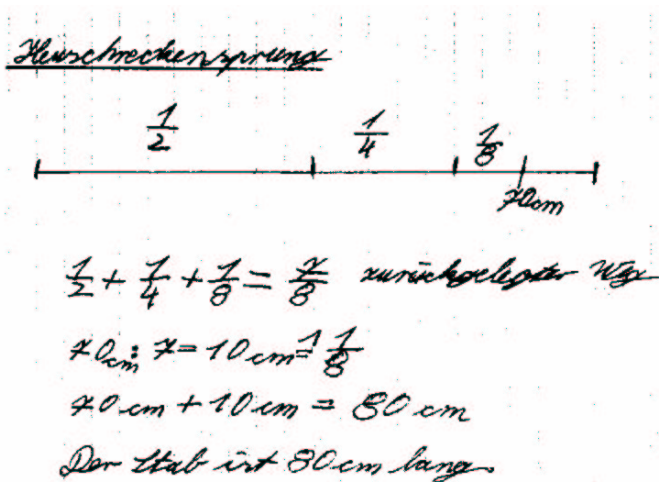 Heuschreckensprung
1/2 1/4 1/8
70cm
1/2 + 1/4 + 1/8 = 7/8 zurückgelegter Weg
70cm : 7 = 10cm ≙ 1/8
70cm + 10cm = 80cm
Der Stab ist 80cm lang.